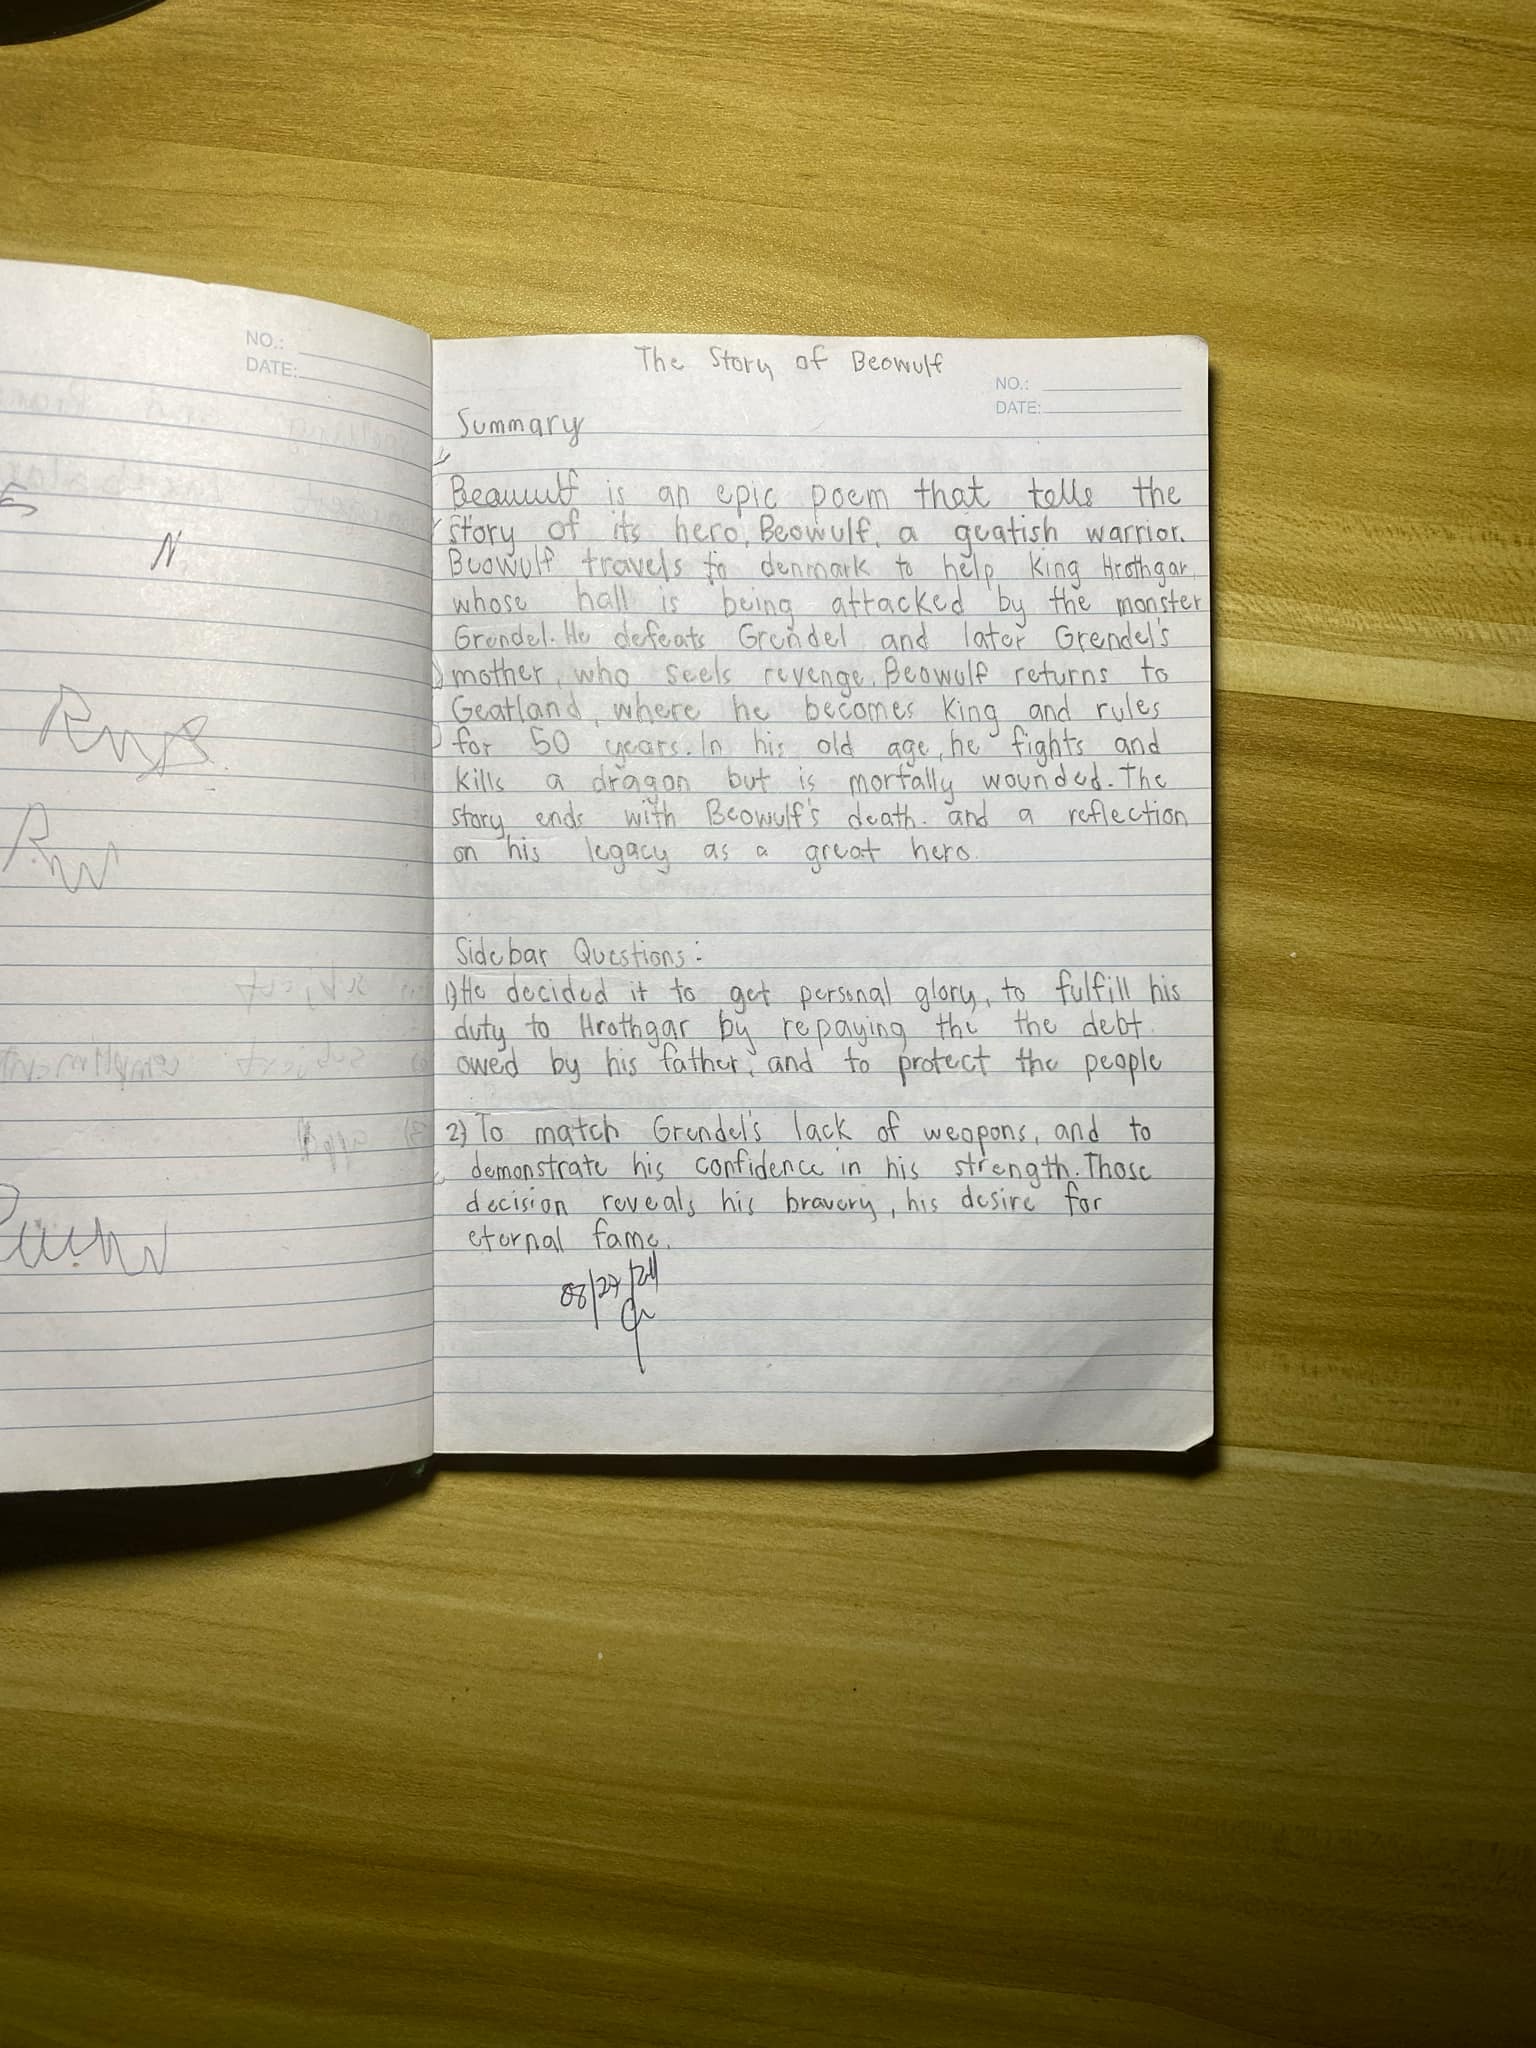 NO.:
DATE:
N
The Story of Beowulf
NO.:
DATE:
Summary
Beowulf is an epic poem that tells the
story of its hero, Beowulf, a geatish warrior.
Beowulf travels to denmark to help King Hrothgar,
whose hall is being attacked by the monster
Grendel. He defeats Grendel and later Grendel's
mother, who seels revenge. Beowulf returns to
Geatland, where he becomes King and rules
for 50 years. In his old age, he fights and
kills a dragon but is mortally wounded. The
story ends with Beowulf's death. and a reflection
on his legacy as a great hero.
Sidebar Questions:
1) He decided it to get personal glory, to fulfill his
duty to Hrothgar by repaying the the debt
owed by his father, and to protect the people
2) To match Grendel's lack of weapons, and to
demonstrate his confidence in his strength. Those
decision reveals his bravery, his desire for
eternal fame.
08/27/24